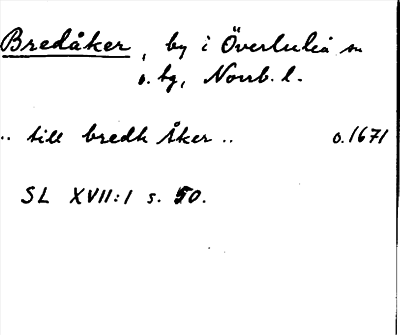 Bredåker, by i Överluleå sn
o. tg, Norrb. l.
.. till bredh Åker .. o.1671
SL XVII:1 s. 50.